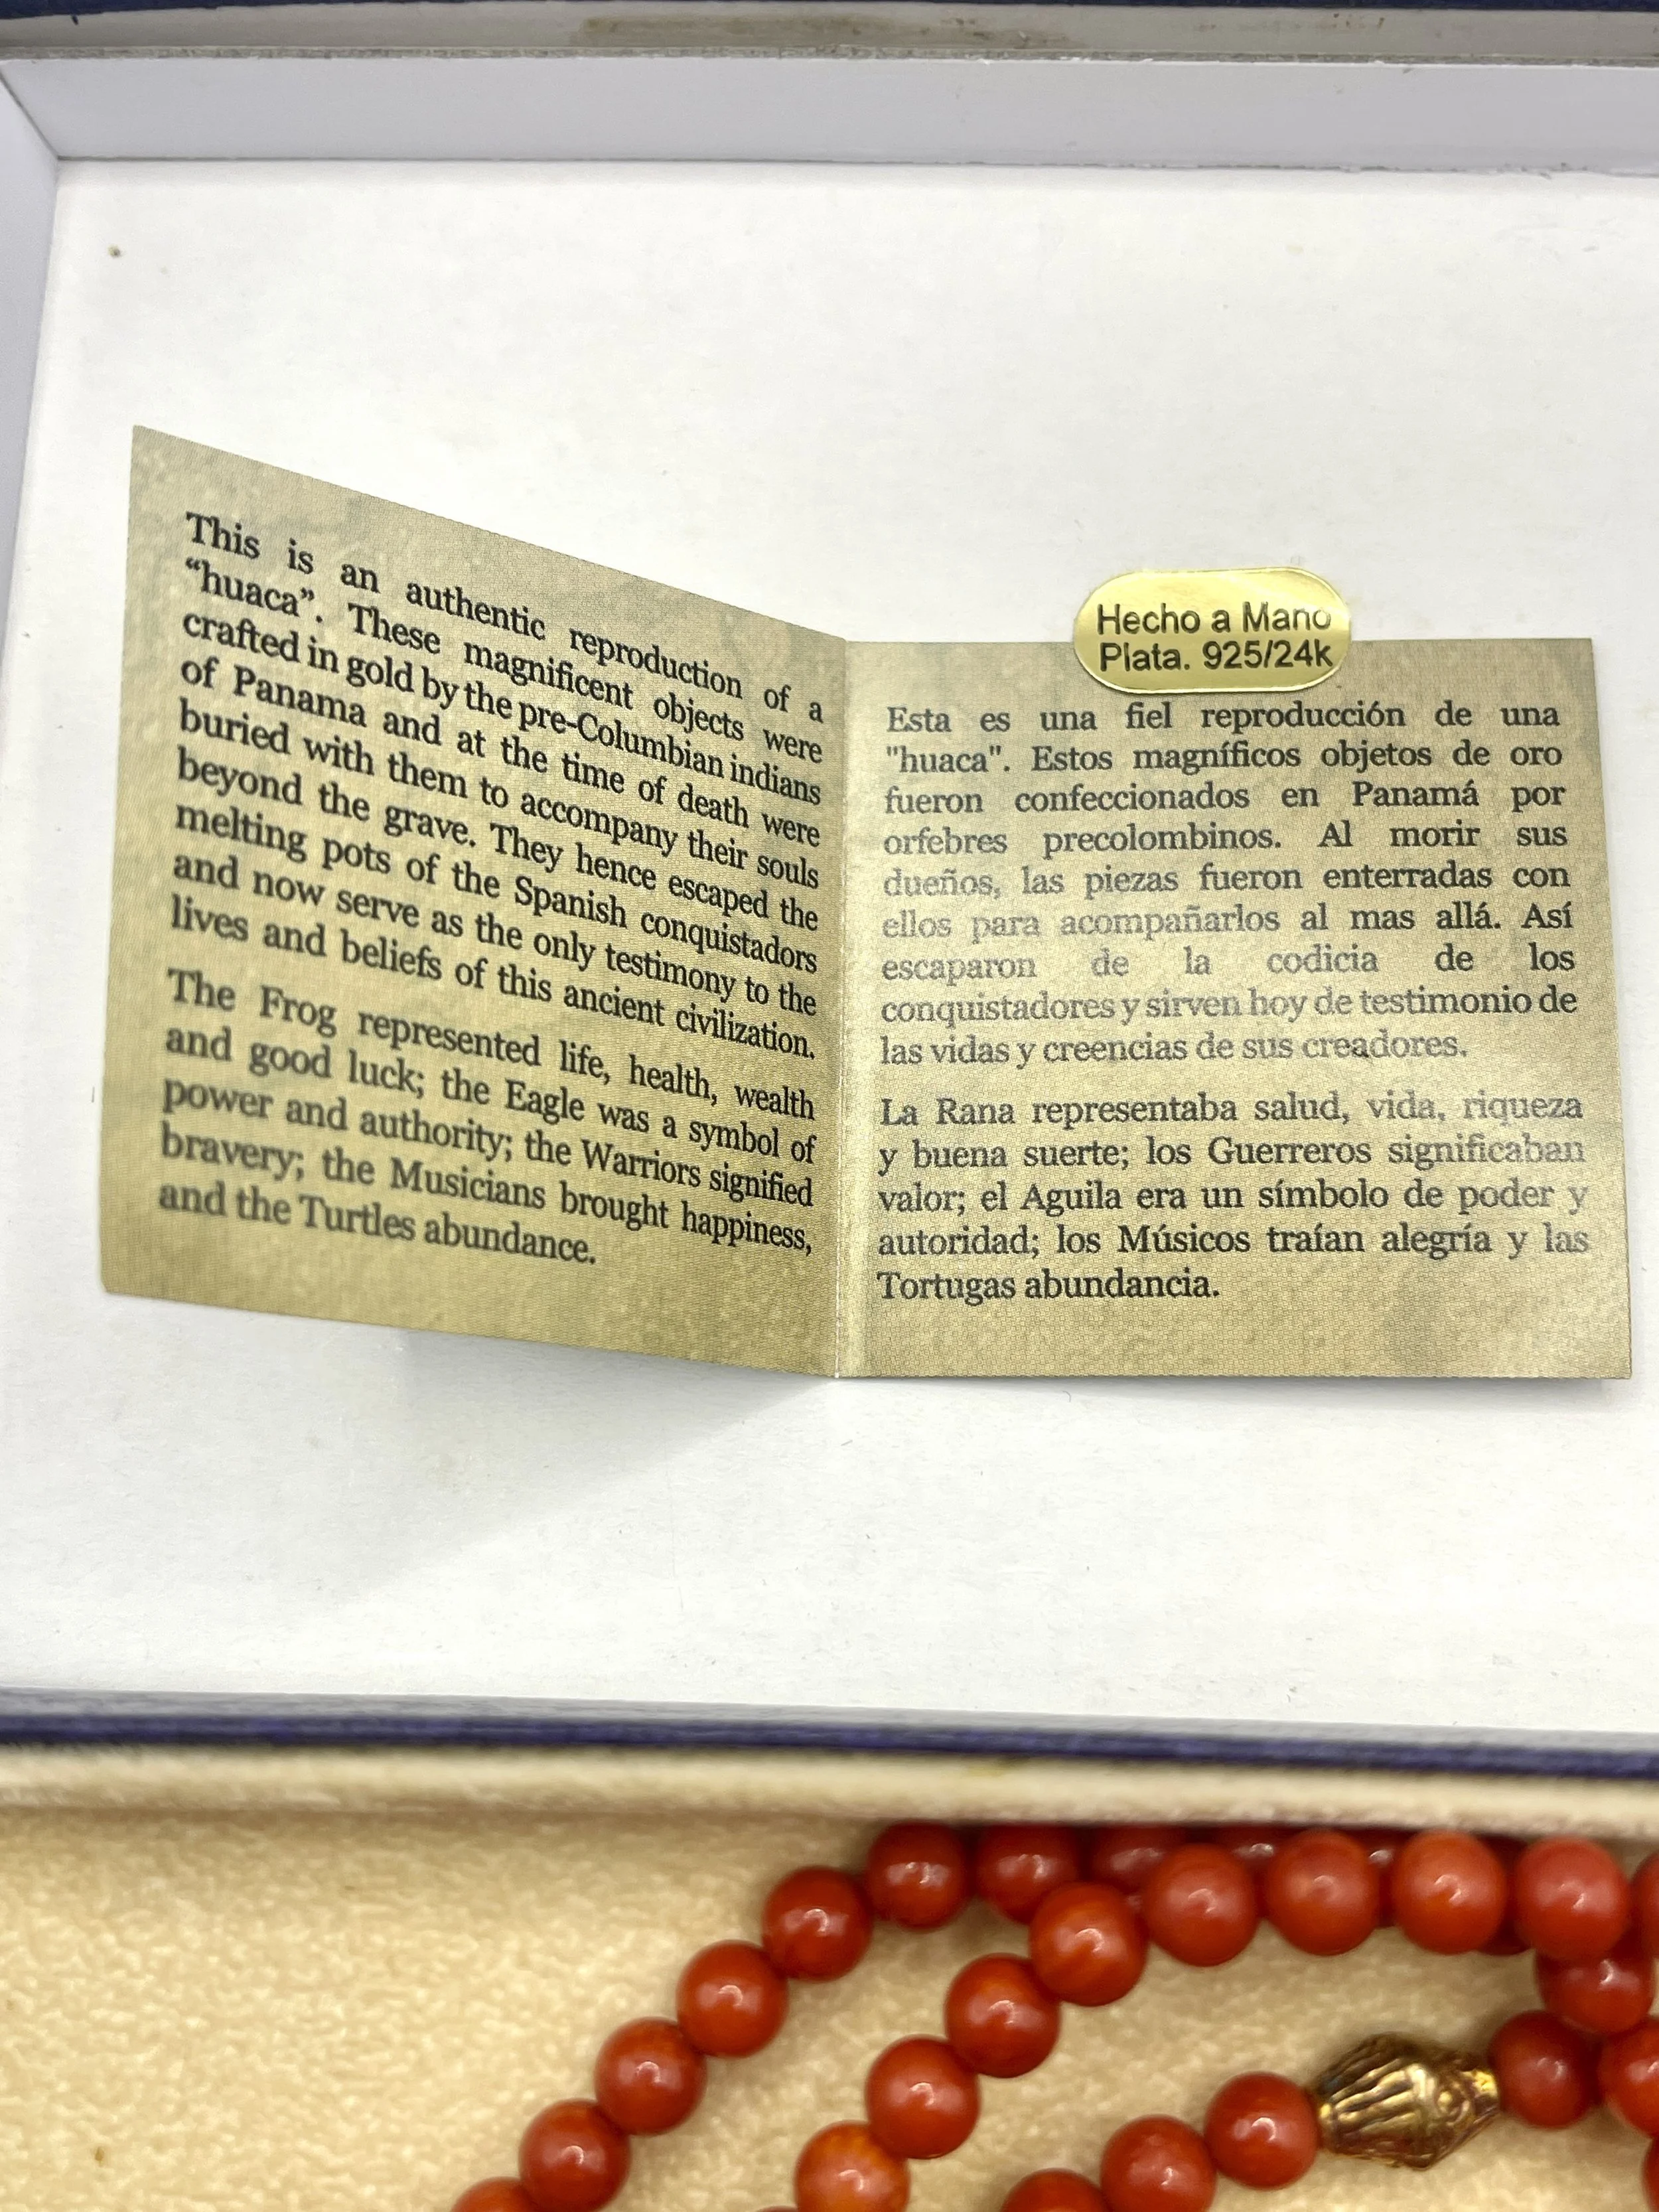 This is an authentic reproduction of a
“huaca”. These magnificent objects were
crafted in gold by the pre-Columbian indians
of Panama and at the time of death were
buried with them to accompany their souls
beyond the grave. They hence escaped the
melting pots of the Spanish conquistadors
and now serve as the only testimony to the
lives and beliefs of this ancient civilization.
The Frog represented life, health, wealth
and good luck; the Eagle was a symbol of
power and authority; the Warriors signified
bravery; the Musicians brought happiness,
and the Turtles abundance.
Hecho a Mano
Plata. 925/24k
Esta es una fiel reproducción de una
"huaca". Estos magníficos objetos de oro
fueron confeccionados en Panamá por
orfebres precolombinos. Al morir sus
dueños, las piezas fueron enterradas con
ellos para acompañarlos al mas allá. Así
escaparon de la codicia de los
conquistadores y sirven hoy de testimonio de
las vidas y creencias de sus creadores.
La Rana representaba salud, vida, riqueza
y buena suerte; los Guerreros significaban
valor; el Aguila era un símbolo de poder y
autoridad; los Músicos traían alegría y las
Tortugas abundancia.